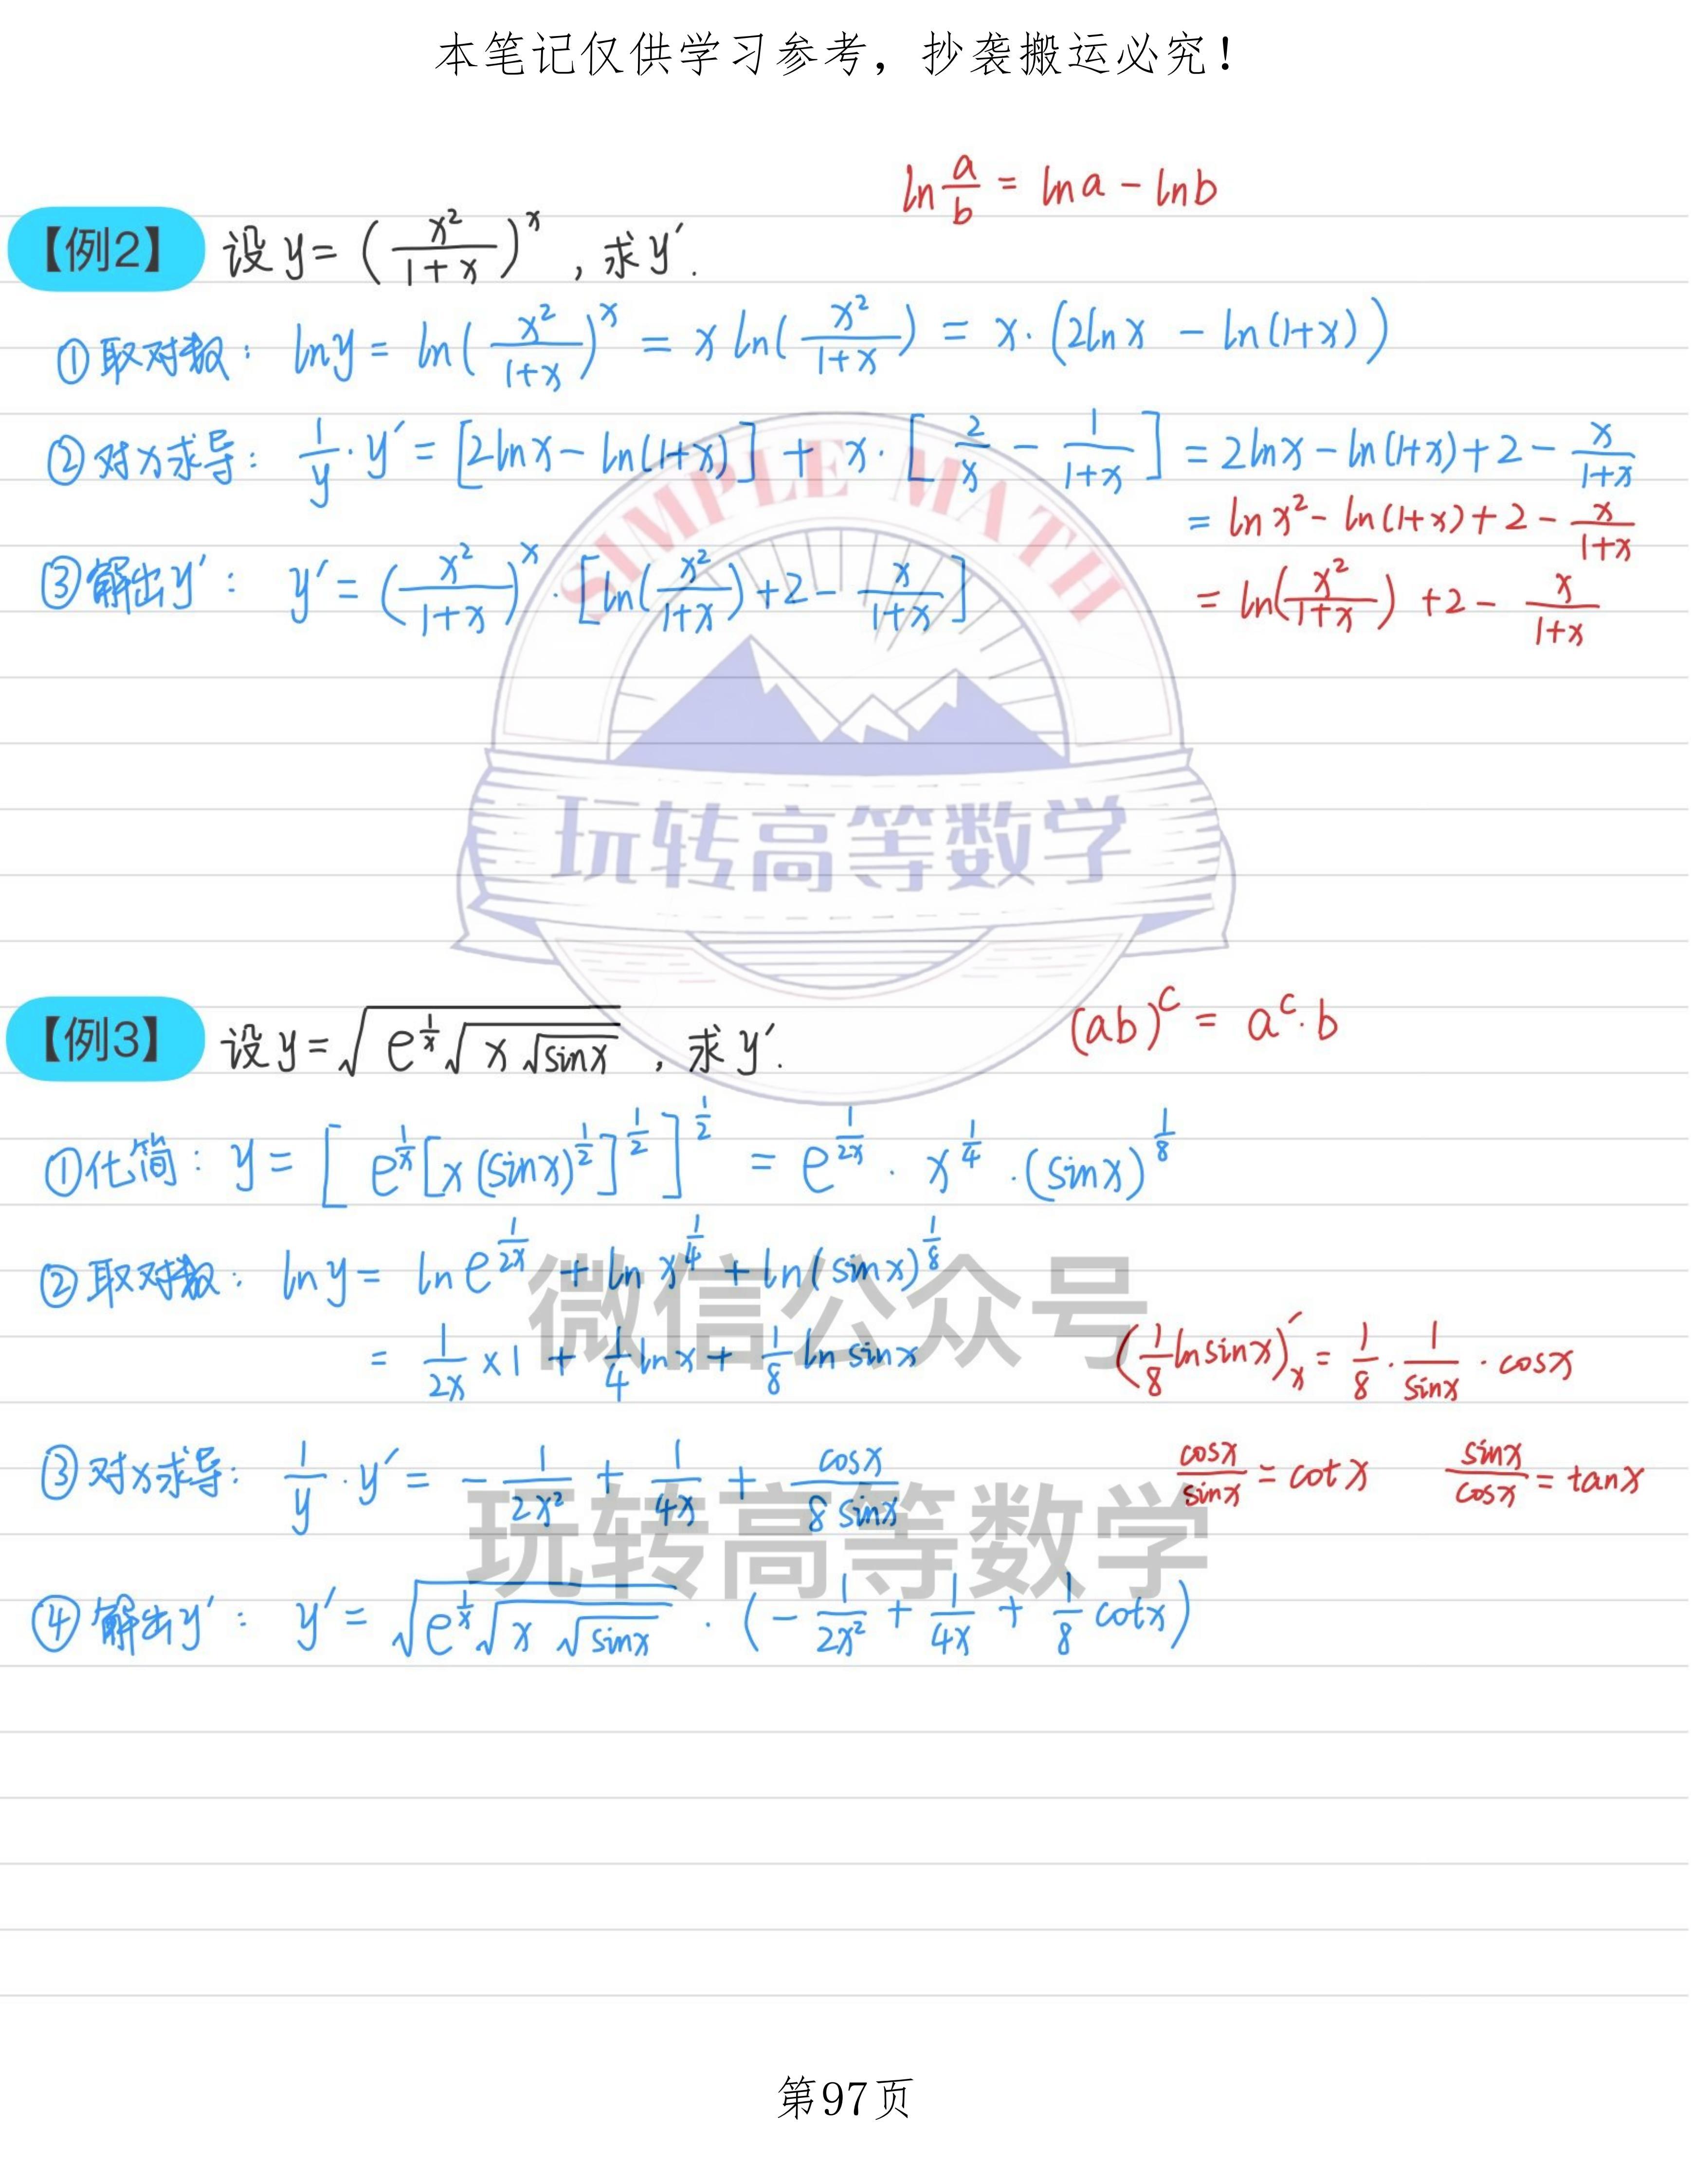 本笔记仅供学习参考，抄袭搬运必究！
ln a/b = lna - lnb
【例2】 设 y = (x²/(1+x))^x , 求 y′.
①取对数： lny = ln(x²/(1+x))^x = x ln(x²/(1+x)) = x·(2lnx - ln(1+x))
②对x求导： 1/y · y′ = [2lnx - ln(1+x)] + x·[2/x - 1/(1+x)] = 2lnx - ln(1+x) + 2 - x/(1+x)
= lnx² - ln(1+x) + 2 - x/(1+x)
③解出y′： y′ = (x²/(1+x))^x · [ln(x²/(1+x)) + 2 - x/(1+x)]
= ln(x²/(1+x)) + 2 - x/(1+x)
SIMPLE MATH
玩转高等数学
【例3】 设 y = √(e^(1/x) √(x √(sinx))) , 求 y′.
(ab)^c = a^c · b
①化简： y = [e^(1/x) [x (sinx)^(1/2)]^(1/2)]^(1/2) = e^(1/2x) · x^(1/4) · (sinx)^(1/8)
②取对数： lny = ln e^(1/2x) + ln x^(1/4) + ln(sinx)^(1/8)
微信公众号
= 1/2x × 1 + 1/4 lnx + 1/8 ln sinx
(1/8 ln sinx)′ₓ = 1/8 · 1/sinx · cosx
③对x求导： 1/y · y′ = - 1/2x² + 1/4x + cosx/8sinx
cosx/sinx = cotx sinx/cosx = tanx
玩转高等数学
④解出y′： y′ = √(e^(1/x) √(x √(sinx))) · (- 1/2x² + 1/4x + 1/8 cotx)
第97页